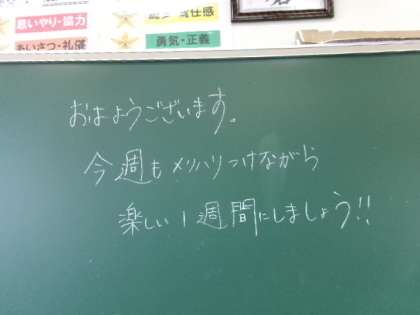 思いやり・協力
責任感
あいさつ・礼儀
勇気・正義
おはようございます。
今週もメリハリつけながら
楽しい1週間にしましょう!!